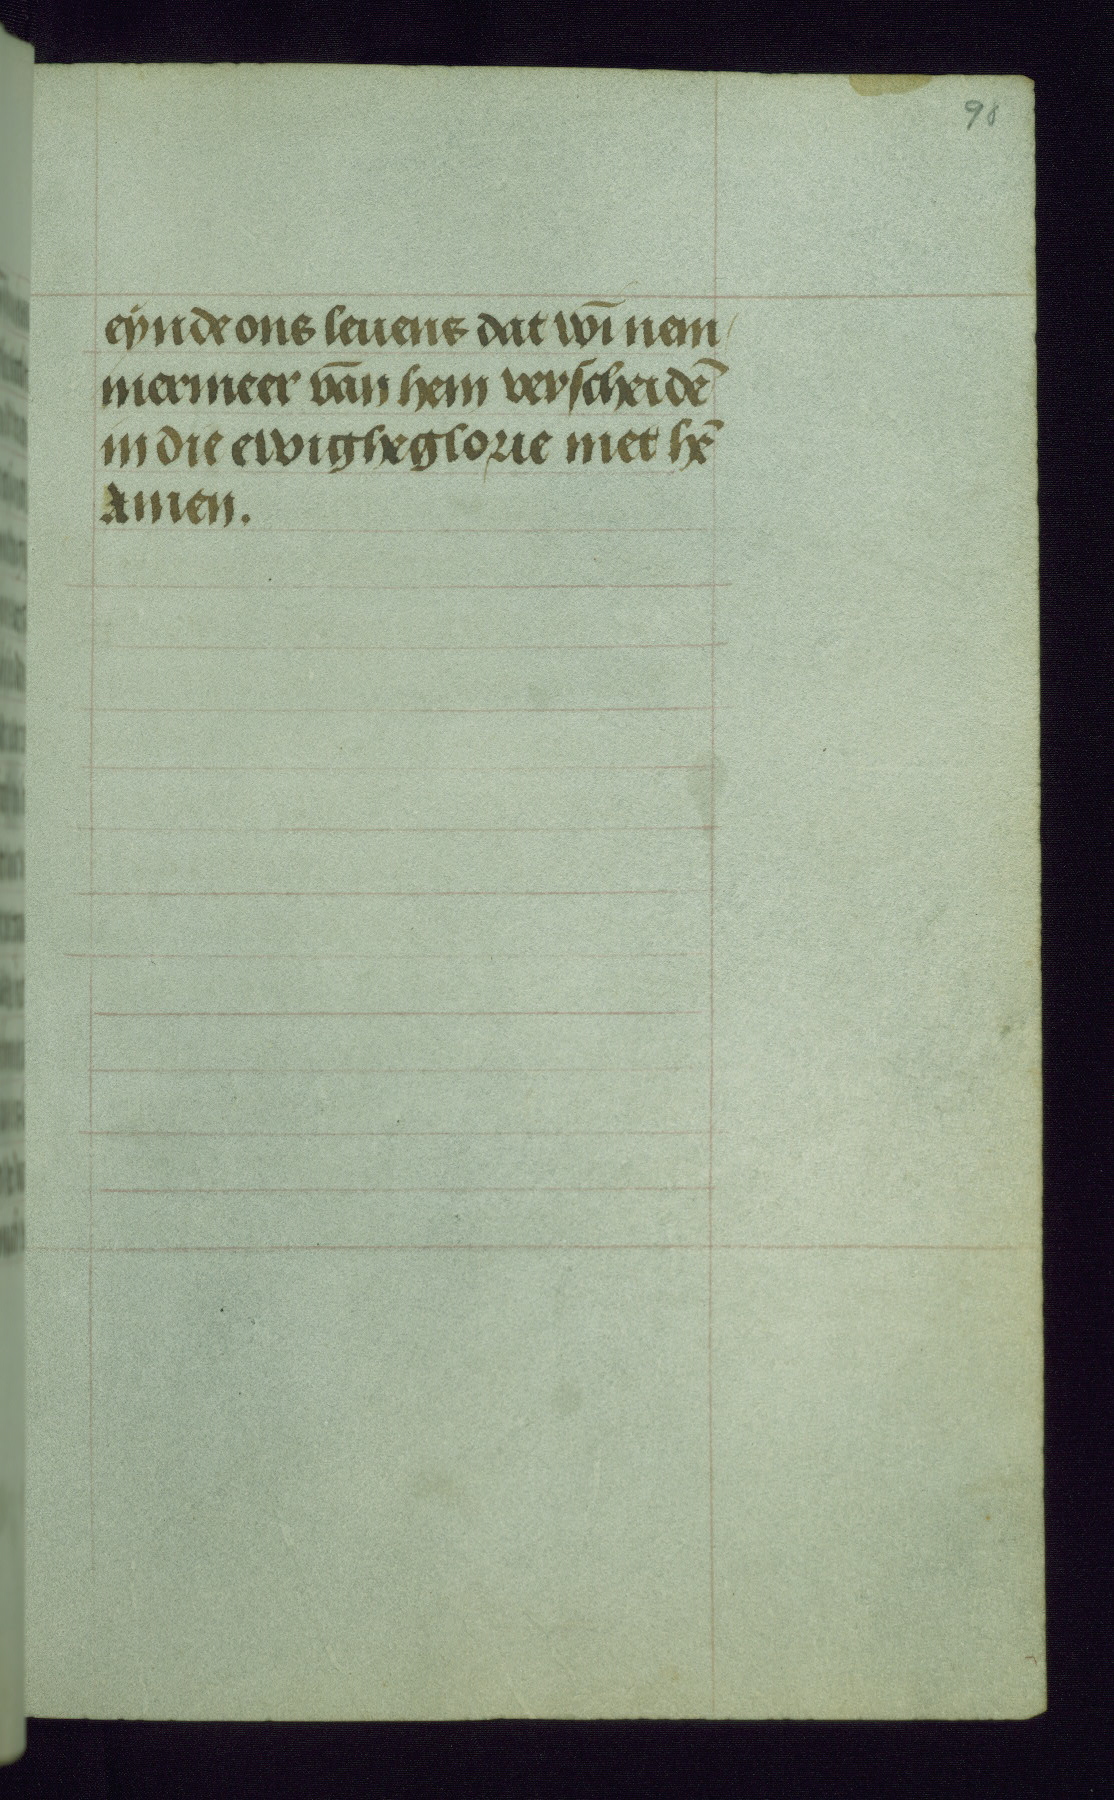 98
eÿnde ons leuens dat wi̅ nem/
mermeer va̅n hem verscheide̅
in die ewighe glorie met he̅
Amen.